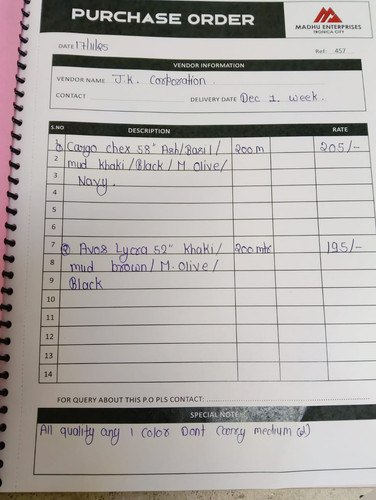 PURCHASE ORDER
MADHU ENTERPRISES
TRONICA CITY
DATE 17/11/25
Ref: 457
VENDOR INFORMATION
VENDOR NAME J.K. Corporation
CONTACT
DELIVERY DATE Dec 1. week.
S.NO DESCRIPTION RATE
1 Cargo chex 58" Ash/Basil/ 200m 205/-
2 mud khaki/Black/M.Olive/
3 Navy.
4
5
6
7 2 Avos Lycra 52" Khaki/ 200 mtr 195/-
8 mud brown/M.Olive/
9 Black
10
11
12
13
14
FOR QUERY ABOUT THIS P.O PLS CONTACT:
SPECIAL NOTE
All quality any 1 Color Dont Carry medium